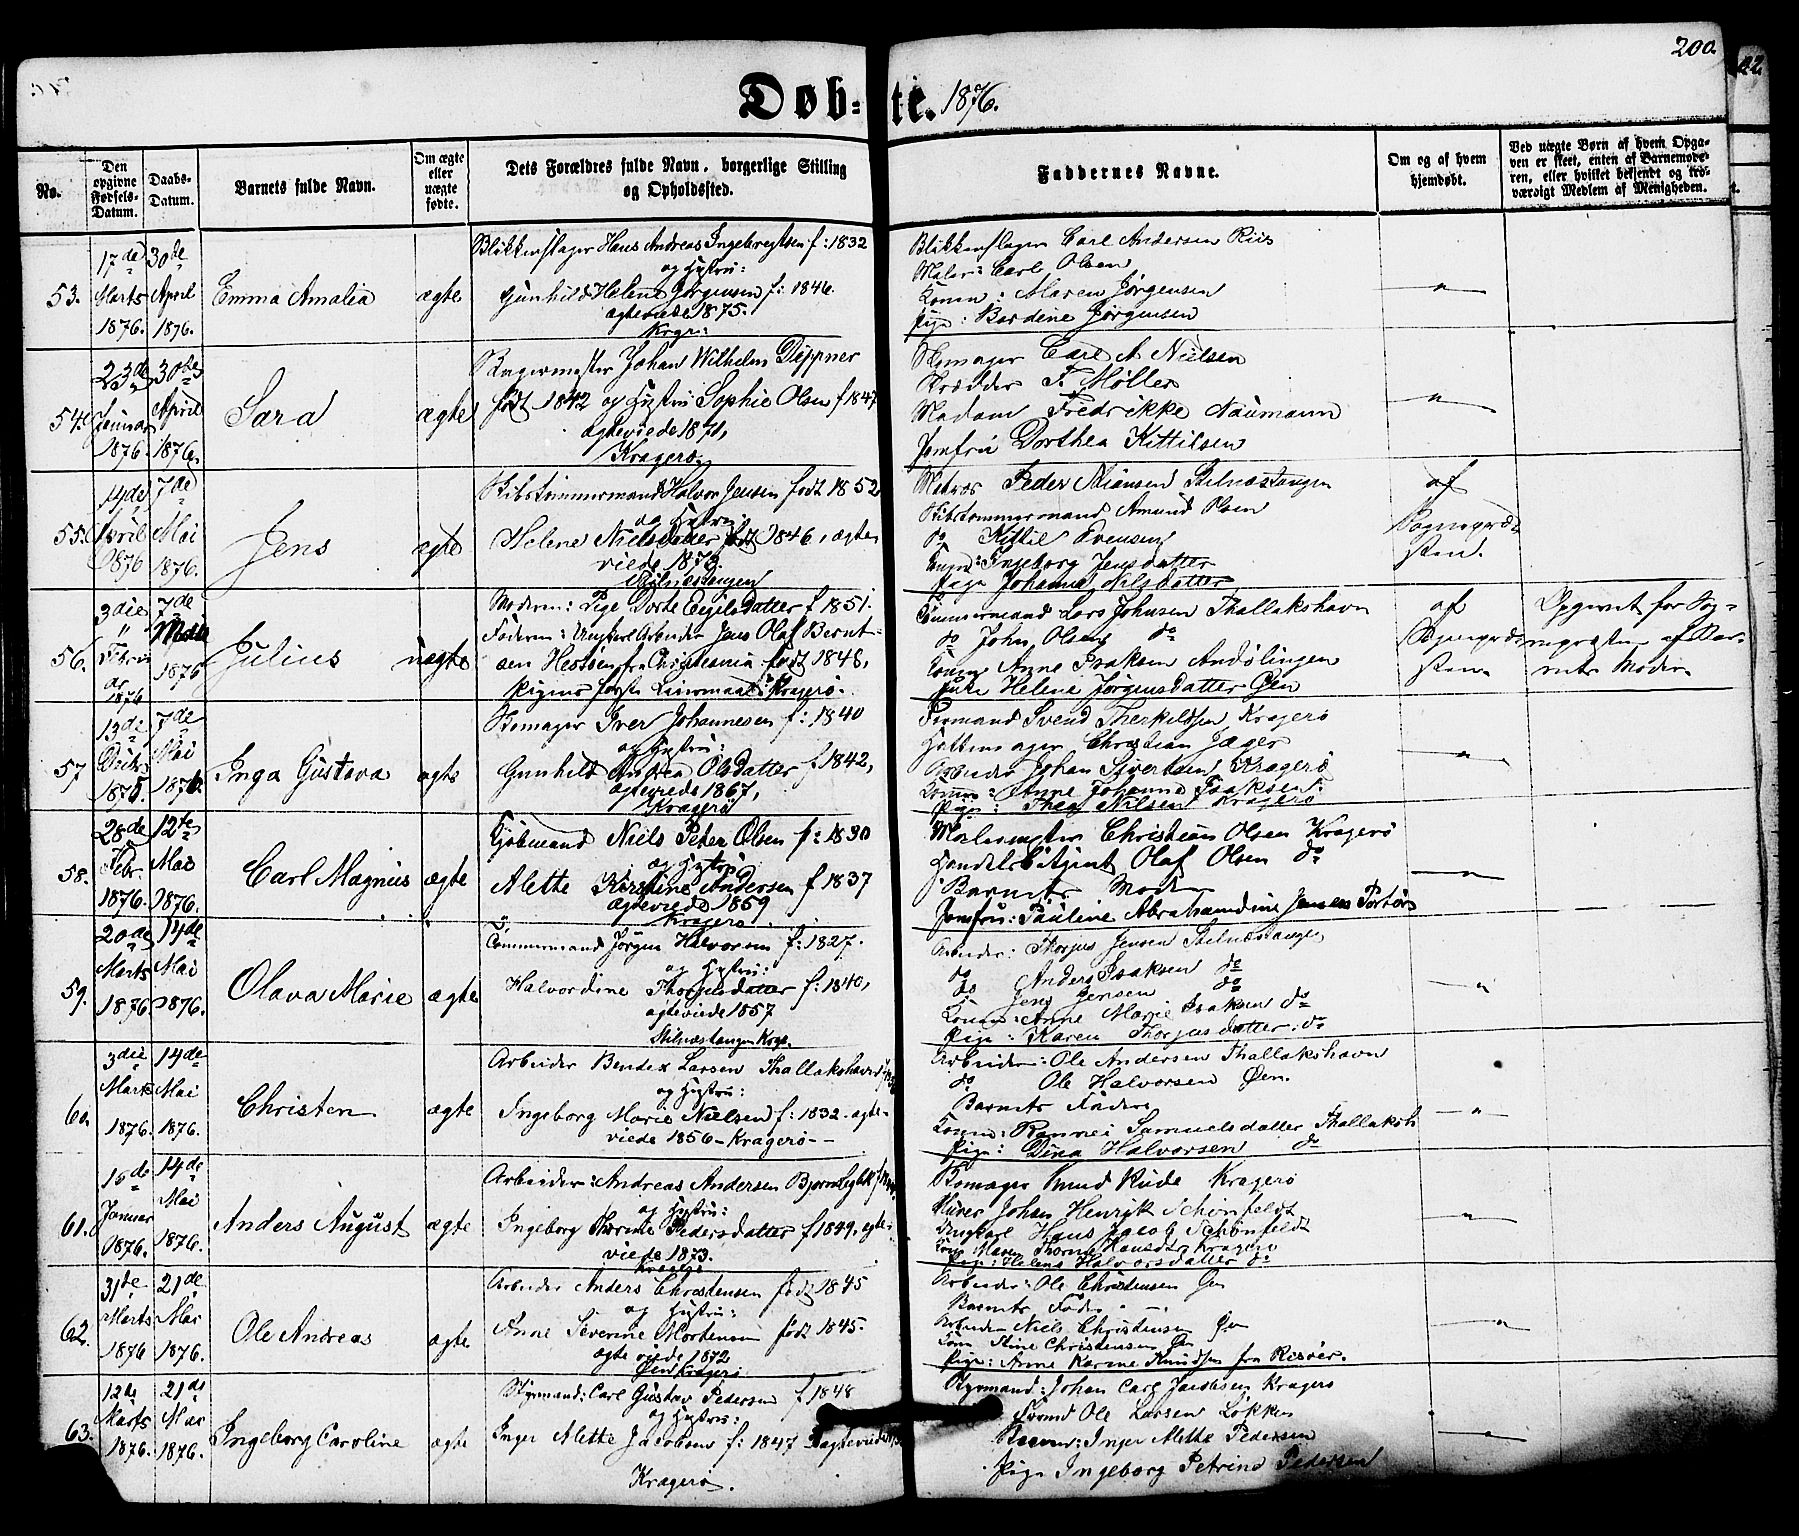 200.
Døb-te. 1876.
No.
Den opgivne Fødsels-Datum.
Daabs-Datum.
Barnets fulde Navn.
Om ægte eller uægte fødte.
Dets Forældres fulde Navn, borgerlige Stilling og Opholdssted.
Faddernes Navne.
Om og af hvem hjemdøbt.
Ved uægte Børn af hvem Opgaven er skeet, enten af Barnemoderen, eller hvilket bekjendt og troværdigt Medlem af Menigheden.
53.
17de Marts 1876.
30de April 1876.
Emma Amalia
ægte
Blikkenslager Hans Andreas Ingebregtsen f: 1832
og Hustru:
Gunhild Helene Jørgensen f: 1846.
ægteviede 1875.
Krgr:
Blikkenslager Carl Andersen Riis
Maler: Carl Olsen
Konen: Maren Jørgensen
Pige: Bardine Jørgensen
54.
23de Januar 1876.
30de April 1876.
Sara
ægte
Bagermester Johan Wilhelm Dippner
født 1842 og Hustru Sophie Olsen f 1847
ægteviede 1871,
Kragerø
Skomager Carl A Nielsen
Skrædder F. Møller
Madam Fredrikke Naumann
Jomfru Dorthea Kittilsen
55.
14de April 1876
7de Mai 1876.
Jens
ægte
Skibstømmermand Halvor Jensen født 1852
og Hustru:
Helene Nielsdatter født 1846, ægte-
viede 1873.
Stilnæstangen
Matros Peder Stilnæstangen
Skibstømmermand Amund Olsen
do Kittil Evensen
Konen: Ingeborg Jensdatter
Pige Johanne Nilsdatter
af
Sognepræ-
sten.
56.
3die Februar 1876
7de 1876
Julius
uægte
Moderen: Pige Dorte Eigilsdatter f 1851.
Faderen: Ungkarl Arbeider Jens Olaf Bernt-
sen Hestøen fra Christiania født 1848,
Pigens første Leiermaal: Kragerø.
Tømmermand Lars Johnsen Thallakshavn
do John Olsen do
Konen Anne Isaksen
Pike Helene Jørgensdatter Øen
af
Sognepræ-
sten.
Opgivet for Sog-
nepræsten af Bar-
nets Moder.
57
13de 1875.
7de Mai 1876.
Inga Gustava
ægte
Skomager Iver Johannesen f: 1840
og Hustru:
Gunhild Andrea Olsdatter f 1842,
ægteviede 1867,
Kragerø
Formand Svend Therkildsen Kragerø
Hattemager Christian Jæger
Arbeider Johan Sivertsen Kragerø
Konen: Anne Johanne Isaksen:
Pige: Thea Nilsen Kragerø
58.
28de Febr. 1876.
12te Mai 1876.
Carl Magnus
ægte
Kjøbmand Niels Peter Olsen f: 1830
og Hustru
Alette Kirstine Andersen f 1837
ægteviede 1859
Kragerø
Malermester Christian Olsen Kragerø
Handels Agent Olaf Olsen do
Barnets Moder
Jomfru: Pauline Abrahamdine Jensen Portør
59.
20de Marts 1876.
14de Mai 1876.
Olava Marie
ægte
Tømmermand Jørgen Halvorsen f: 1827.
og Hustru:
Halvordine Thorjusdatter f: 1840,
ægteviede 1857
Stilnæstangen Krgr.
Arbeider: Thorjus Jensen Stilnæstangen
do Anders Isaksen do
do Jens Jensen do
Konen: Anne Marie Isaksen do
Pige: Karen Thorjusdatter: do
60.
3die Marts 1876.
14de Mai 1876.
Christen
ægte
Arbeider Bendix Larsen Thallakshavn
og Hustru:
Ingeborg Marie Nielsen f: 1832. ægte-
viede 1856 - Kragerø -
Arbeider: Ole Andersen Thallakshavn
do Ole Halvorsen Øen.
Barnets Fader
Konen: Ronnei Samuelsdatter Thallaksh
Pige: Dina Halvorsen do
61.
16de Januar 1876.
14de Mai 1876.
Anders August
ægte
Arbeider: Andreas Andersen
og Hustru:
Ingeborg Thorine Pedersdatter f 1849, ægte-
viede 1873.
Kragerø
Skomager Knud Kragerø
Murer Johan Henrik Schønfeldt
Ungkarl Hans Jacob Schønfeldt
Kone Maren Thorine Hansdtr Kragerø
Pige: Helene Halvorsdatter do
62.
31te Marts 1876
21de Mai 1876.
Ole Andreas
ægte
Arbeider Anders Christensen født 1845
og Hustru:
Anne Severine Mortensen født 1845.
ægteviede 1872
Øen Kragerø
Arbeider: Ole Christensen Øen
Barnets Fader
Arbeider Niels Christensen Øen
Kone Stine Christensen Øen
Pige: Anne Karine Knudsen fra Risøer.
63.
12de Marts 1876.
21de Mai 1876.
Ingeborg Caroline
ægte
Styrmand: Carl Gustav Pedersen f 1848
og Hustru:
Inger Alette Jacobsen f: 1847 ægteviede
Kragerø.
Styrmand: Johan Carl Jacobsen Kragerø
Ole Larsen Løkken
Inger Alette Pedersen
Pige Ingeborg Petrine Pedersen